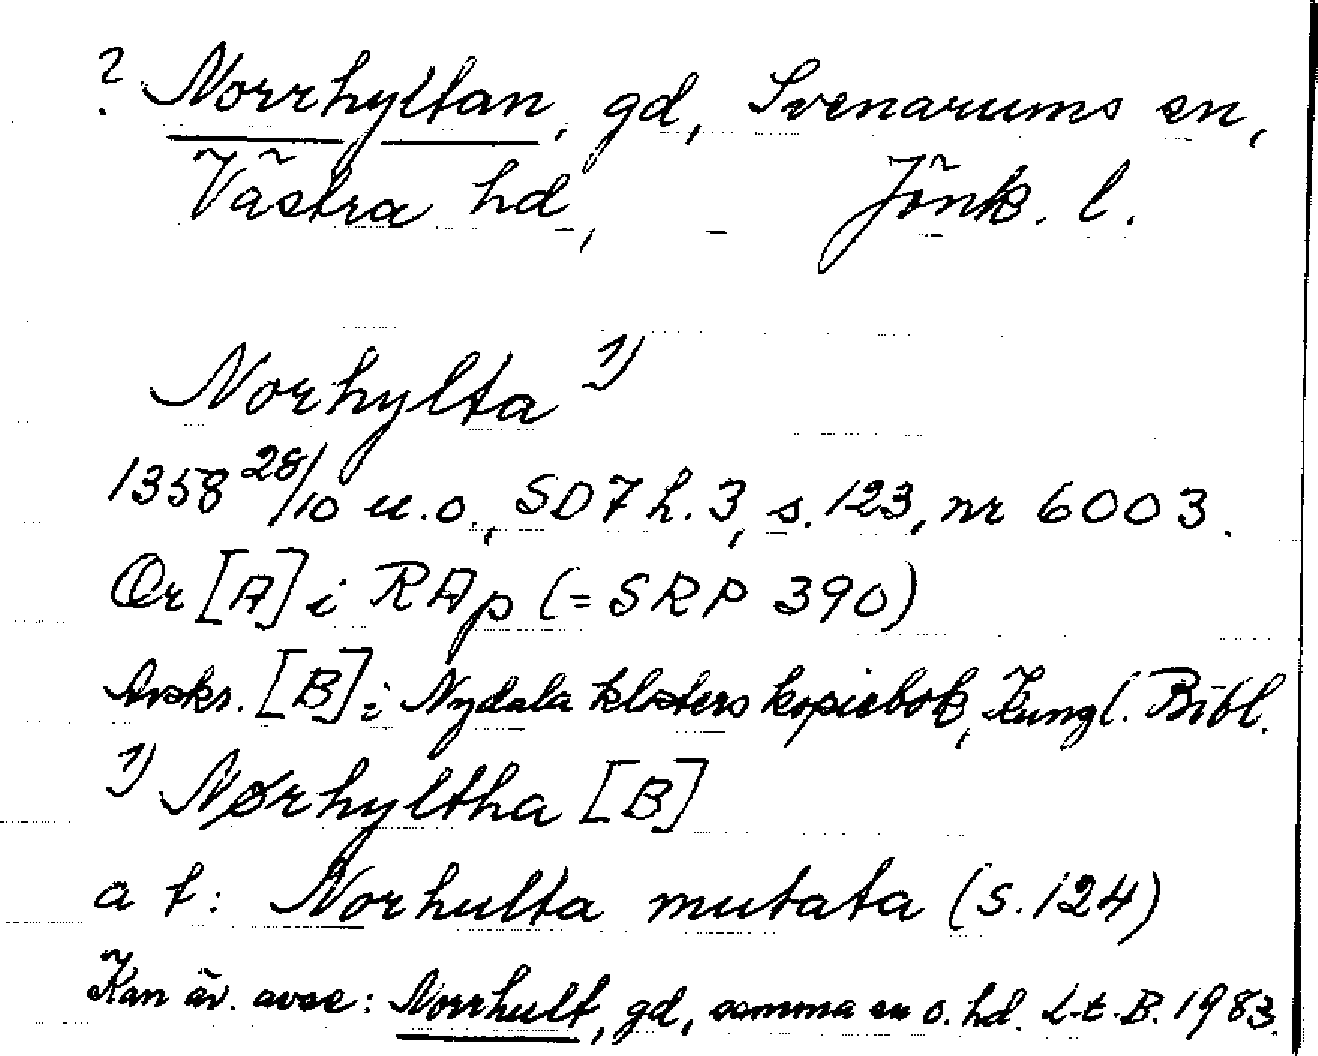 ? Norrhyltan, gd, Svenarums sn,
Västra hd, Jönk. l.
Norhylta 1)
1358 28/10 u.o., SD 7 h. 3, s. 123, nr 6003.
Or [A] i RAp (= SRP 390)
Avskr. [B] i Nydala klosters kopiebok, Kungl. Bibl.
1) Nørhyltha [B]
a t: Norhulta mutata (s. 124)
Kan äv. avse: Norrhult, gd, samma sn o. hd. L-t. B. 1983.